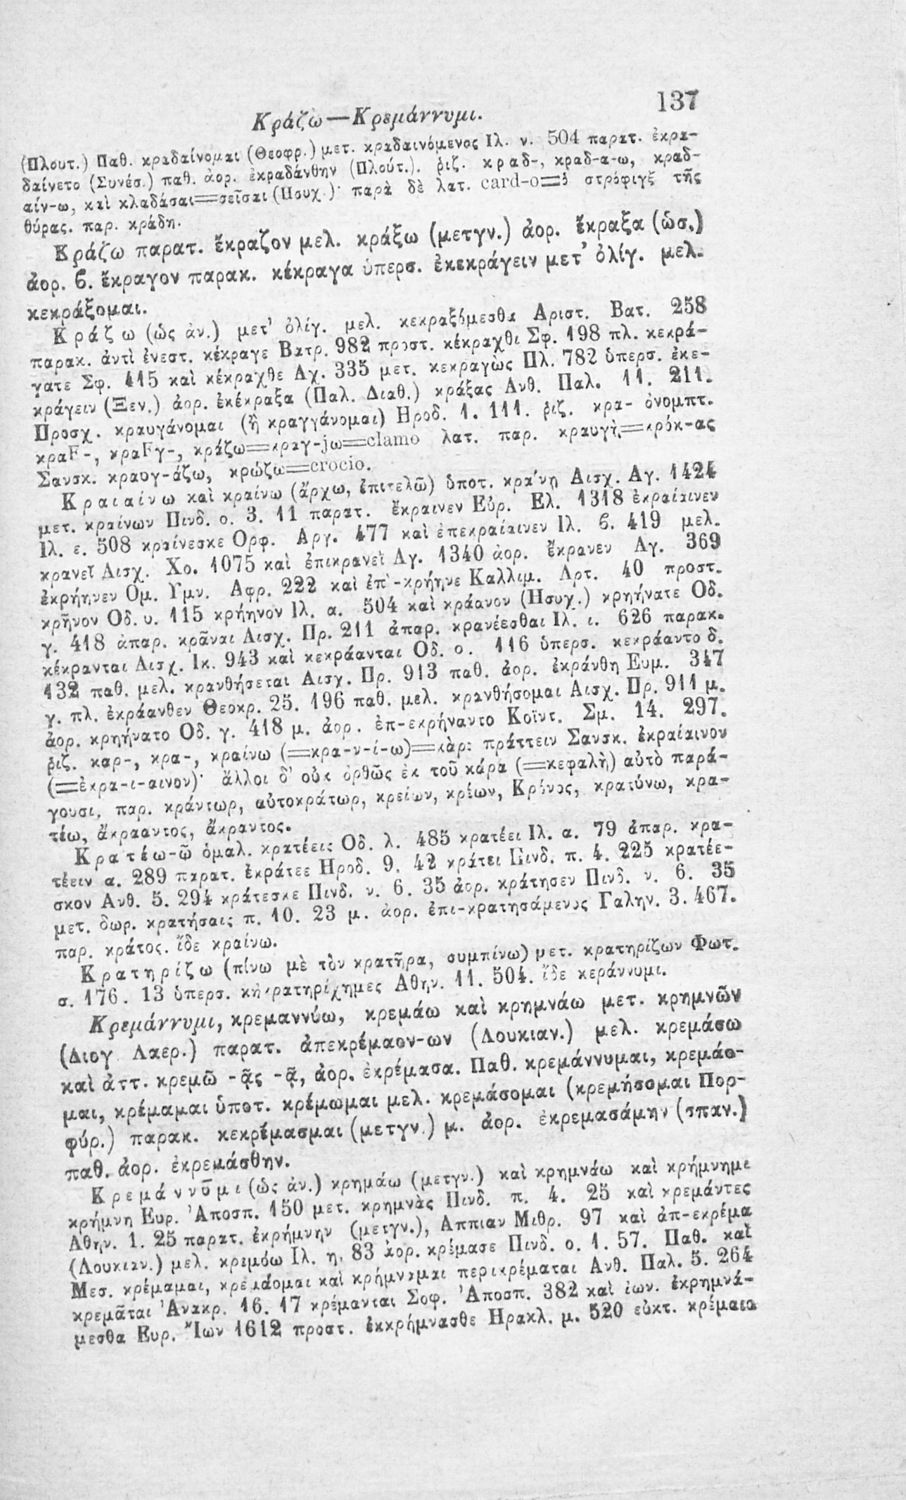 Κράζω—Κρεμάννυμι. 137
(Πλουτ.) Παθ. κραδαίνομαι (Θεοφρ.) μετ. κραδαινόμενος Ιλ. ν. 504 παρατ. ἐκρα-
δαίνετο (Συνέσ.) παθ. ἀορ. ἐκραδάνθην (Πλούτ.). ῥιζ. κραδ-, κραδ-α-ω, κραδ-
αίν-ω, καὶ κλαδάσαι=σεῖσαι (Ησυχ.)· παρὰ δὲ λατ. card-o=ὁ στρόφιγξ τῆς
θύρας. παρ. κράδη.
Κράζω παρατ. ἔκραζον μελ. κράξω (μετγν.) ἀορ. ἔκραξα (ὡσ.)
ἀορ. β. ἔκραγον παρακ. κέκραγα ὑπερσ. ἐκεκράγειν μετ' ὀλίγ. μελ.
κεκράξομαι.
Κράζω (ὡς ἀν.) μετ' ὀλίγ. μελ. κεκραξόμεσθα Αριστ. Βατ. 258
παρακ. ἀντὶ ἐνεστ. κέκραγε Βατρ. 982 προστ. κέκραχθι Σφ. 198 πλ. κεκρά-
γατε Σφ. 415 καὶ κέκραχθε Αχ. 335 μετ. κεκραγὼς Πλ. 782 ὑπερσ. ἐκε-
κράγειν (Ξεν.) ἀορ. ἐκέκραξα (Παλ. Διαθ.) κράξας Ανθ. Παλ. 11. 211.
Προσχ. κραυγάνομαι (ἢ κραγγάνομαι) Ηροδ. 1. 111. ῥιζ. κρα- ὀνομπτ.
κραF-, κραFγ-, κράζω=κραγ-jω=clamo λατ. παρ. κραυγὴ,=κρόκ-ας
Σανσκ. κραυγ-άζω, κρώζω=crocio.
Κραιαίνω καὶ κραίνω (ἄρχω, ἐπιτελῶ) ὑποτ. κραίνῃ Αισχ. Αγ. 1424
μετ. κραίνων Πινδ. ο. 3. 11 παρατ. ἔκραινεν Εὐρ. Ελ. 1318 ἐκραίαινεν
Ιλ. ε. 508 κραίνεσκε Ορφ. Αργ. 477 καὶ ἐπεκραίαινεν Ιλ. β. 419 μελ.
κρανεῖ Αισχ. Χο. 1075 καὶ ἐπικρανεῖ Αγ. 1340 ἀορ. ἔκρανεν Αγ. 369
ἐκρήηνεν Ομ. Υμν. Αφρ. 222 καὶ ἐπ'-κρήηνε Καλλιμ. Αρτ. 40 προστ.
κρῆνον Οδ. υ. 115 κρήηνόν Ιλ. α. 504 καὶ κράανον (Ησυχ.) κρηήνατε Οδ.
γ. 418 ἀπαρ. κρᾶναι Αισχ. Πρ. 211 ἀπαρ. κρανέεσθαι Ιλ. ι. 626 παρακ.
κέκρανται Αισχ. Ικ. 943 καὶ κεκράανται Οδ. ο. 116 ὑπερσ. κεκράαντο δ.
132 παθ. μελ. κρανθήσεται Αισχ. Πρ. 913 παθ. ἀορ. ἐκράνθη Ευμ. 347
γ. πλ. ἐκράανθεν Θεοκρ. 25. 196 παθ. μελ. κρανθήσομαι Αισχ. Πρ. 911 μ.
ἀορ. κρηήνατο Οδ. γ. 418 μ. ἀορ. ἐπ-εκρήναντο Κοϊντ. Σμ. 14. 297.
ῥιζ. καρ-, κρα-, κραίνω (=κρα-ν-ί-ω)=κὰρ: πράττειν Σανσκ. ἐκραίαινον
(=ἐκρα-ι-αινον)· ἄλλοι δ' οὐκ ὀρθῶς ἐκ τοῦ κάρα (=κεφαλὴ) αὐτὸ παρά-
γουσι, παρ. κράντωρ, αὐτοκράτωρ, κρείων, κρέων, Κρόνος, κρατύνω, κρα-
τέω, ἀκράαντος, ἄκραντος.
Κρατέω-ῶ ὁμαλ. κρατέεις Οδ. λ. 485 κρατέει Ιλ. α. 79 ἀπαρ. κρα-
τέειν α. 289 παρατ. ἐκράτεε Ηροδ. 9. 42 κράτει Πινδ. π. 4. 225 κρατέε-
σκον Ανθ. 5. 294 κράτεσκε Πινδ. ν. 6. 35 ἀορ. κράτησεν Πινδ. ν. 6. 35
μετ. δωρ. κρατήσαις π. 10. 23 μ. ἀορ. ἐπι-κρατησάμενος Γαλην. 3. 467.
παρ. κράτος. ἴδε κραίνω.
Κρατηρίζω (πίνω μὲ τὸν κρατῆρα, συμπίνω) μετ. κρατηρίζων Φωτ.
σ. 176. 13 ὑπερσ. Αθην. 11. 504. ἴδε κεράννυμι.
Κρεμάννυμι, κρεμαννύω, κρεμάω καὶ κρημνάω μετ. κρημνῶν
(Διογ Λαερ.) παρατ. ἀπεκρέμαον-ων (Λουκιαν.) μελ. κρεμάσω
καὶ ἀττ. κρεμῶ -ᾷς -ᾷ, ἀορ. ἐκρέμασα. Παθ. κρεμάννυμαι, κρεμάο-
μαι, κρέμαμαι ὑποτ. κρέμωμαι μελ. κρεμάσομαι (κρεμήσομαι Πορ-
φύρ.) παρακ. κεκρέμασμαι (μετγν.) μ. ἀορ. ἐκρεμασάμην (σπαν.)
παθ. ἀορ. ἐκρεμάσθην.
Κρεμάννῡμι (ὡς ἀν.) κρημάω (μετγν.) καὶ κρημνάω καὶ κρήμνημι
κρήμνη Ευρ. Ἀποσπ. 150 μετ. κρημνὰς Πινδ. π. 4. 25 καὶ κρεμάντες
Αθην. 1. 25 παρατ. ἐκρήμνην (μετγν.), Αππιαν Μιθρ. 97 καὶ ἀπ-εκρέμα
(Λουκιαν.) μελ. κρεμόω Ιλ. η. 83 ἀορ. κρέμασε Πινδ. ο. 1. 57. Παθ. καὶ
Μεσ. κρέμαμαι, κρεμάομαι καὶ κρήμναμαι περικρέμαται Ανθ. Παλ. 5. 264
κρεμᾶται Ἀνακρ. 16. 17 κρέμανται Σοφ. Ἀποσπ. 382 καὶ ἰων. ἐκρημνά-
μεσθα Ευρ. Ἴων 1612 προστ. ἐκκρήμνασθε Ηρακλ. μ. 520 εὐκτ. κρέμαισ